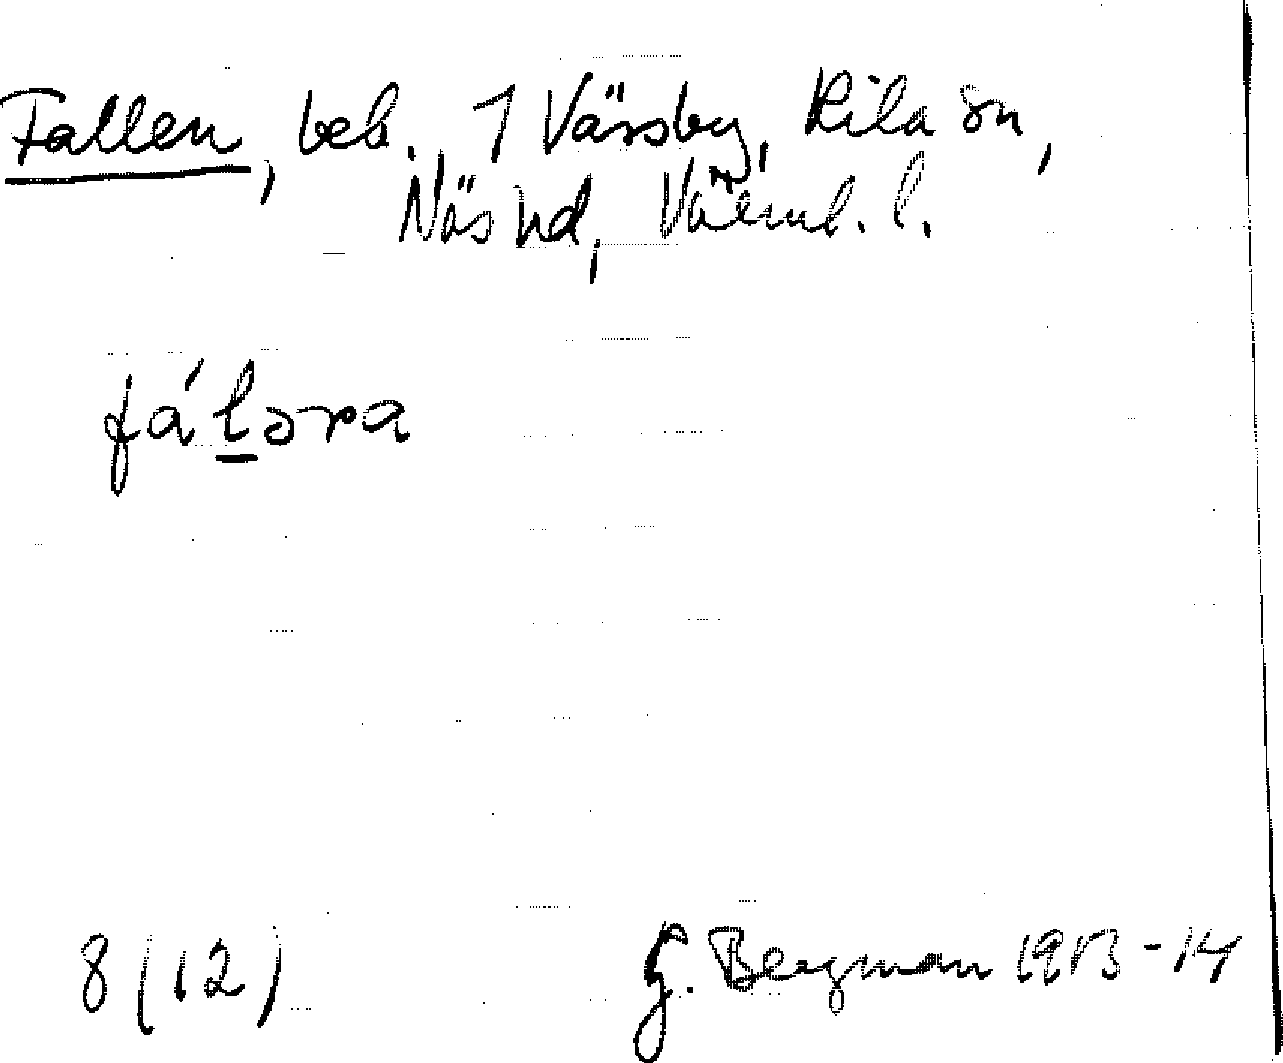 Fallen, beb. 1 Värsby, Kila sn,
Näs hd, Värml. l.
fálǝra
8 (12)
G. Bergman 1913-14